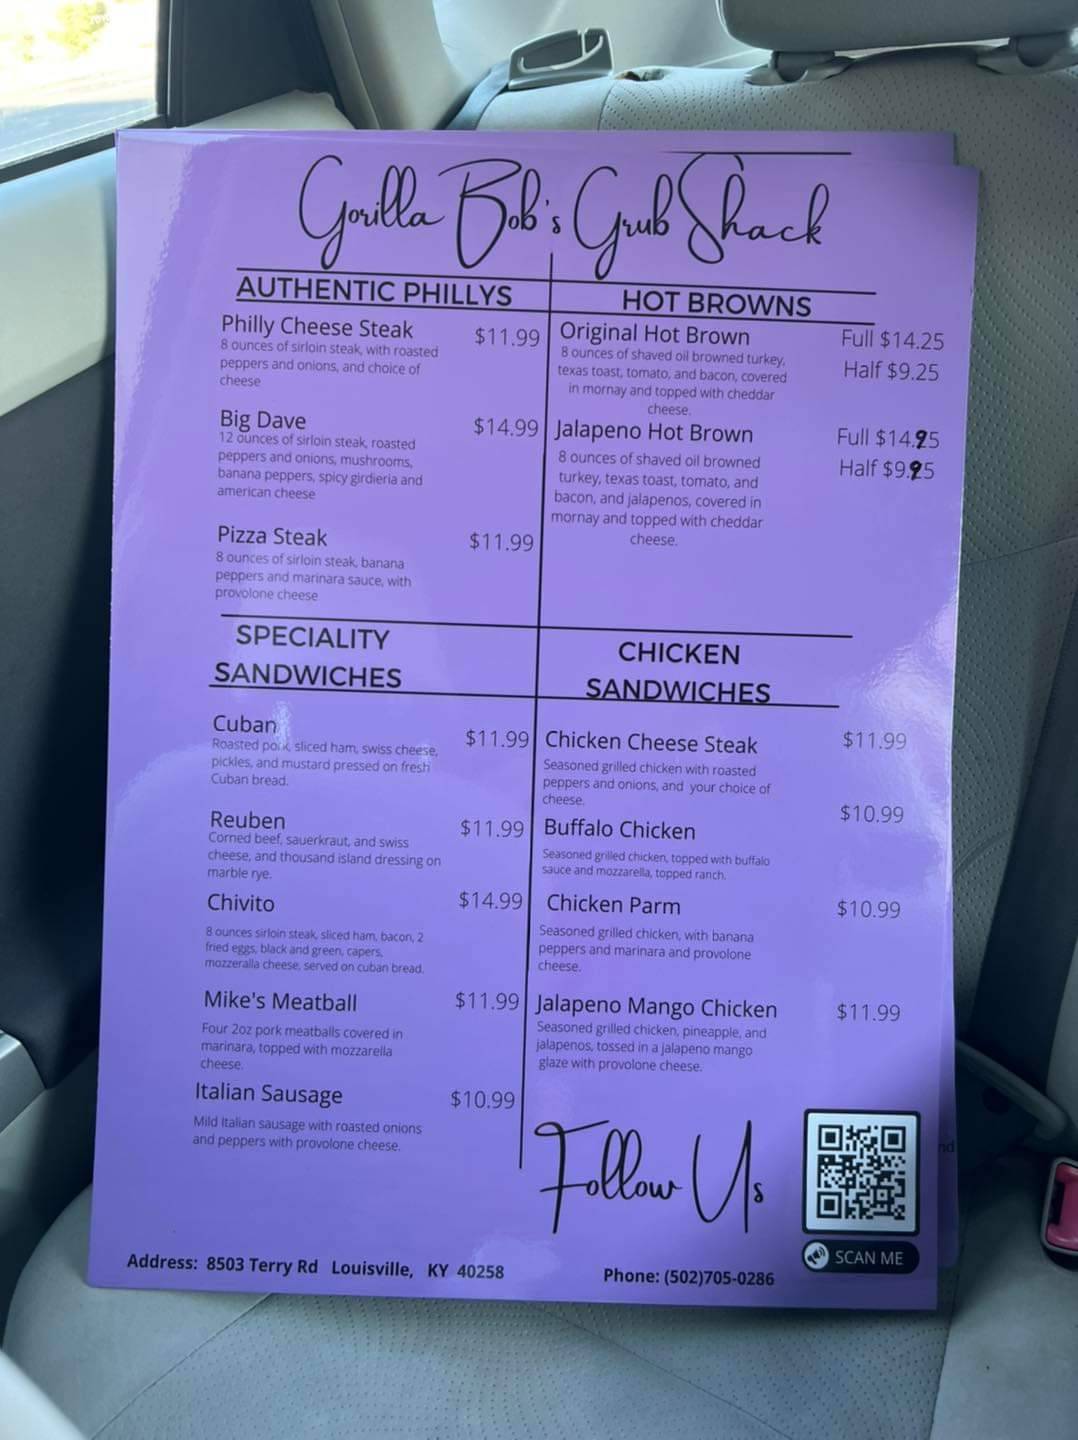 Gorilla Bob's Grub Shack
AUTHENTIC PHILLYS
Philly Cheese Steak $11.99
8 ounces of sirloin steak, with roasted
peppers and onions, and choice of
cheese
Big Dave $14.99
12 ounces of sirloin steak, roasted
peppers and onions, mushrooms,
banana peppers, spicy girdieria and
american cheese
Pizza Steak $11.99
8 ounces of sirloin steak, banana
peppers and marinara sauce, with
provolone cheese
HOT BROWNS
Original Hot Brown Full $14.25
Half $9.25
8 ounces of shaved oil browned turkey,
texas toast, tomato, and bacon, covered
in mornay and topped with cheddar
cheese.
Jalapeno Hot Brown Full $14.95
Half $9.95
8 ounces of shaved oil browned
turkey, texas toast, tomato, and
bacon, and jalapenos, covered in
mornay and topped with cheddar
cheese.
SPECIALITY
SANDWICHES
Cuban $11.99
Roasted pork, sliced ham, swiss cheese,
pickles, and mustard pressed on fresh
Cuban bread.
Reuben $11.99
Corned beef, sauerkraut, and swiss
cheese, and thousand island dressing on
marble rye.
Chivito $14.99
8 ounces sirloin steak, sliced ham, bacon, 2
fried eggs, black and green, capers,
mozzeralla cheese, served on cuban bread.
Mike's Meatball $11.99
Four 2oz pork meatballs covered in
marinara, topped with mozzarella
cheese.
Italian Sausage $10.99
Mild Italian sausage with roasted onions
and peppers with provolone cheese.
CHICKEN
SANDWICHES
Chicken Cheese Steak $11.99
Seasoned grilled chicken with roasted
peppers and onions, and your choice of
cheese.
Buffalo Chicken $10.99
Seasoned grilled chicken, topped with buffalo
sauce and mozzarella, topped ranch.
Chicken Parm $10.99
Seasoned grilled chicken, with banana
peppers and marinara and provolone
cheese.
Jalapeno Mango Chicken $11.99
Seasoned grilled chicken, pineapple, and
jalapenos, tossed in a jalapeno mango
glaze with provolone cheese.
Follow Us
SCAN ME
Address: 8503 Terry Rd Louisville, KY 40258
Phone: (502)705-0286